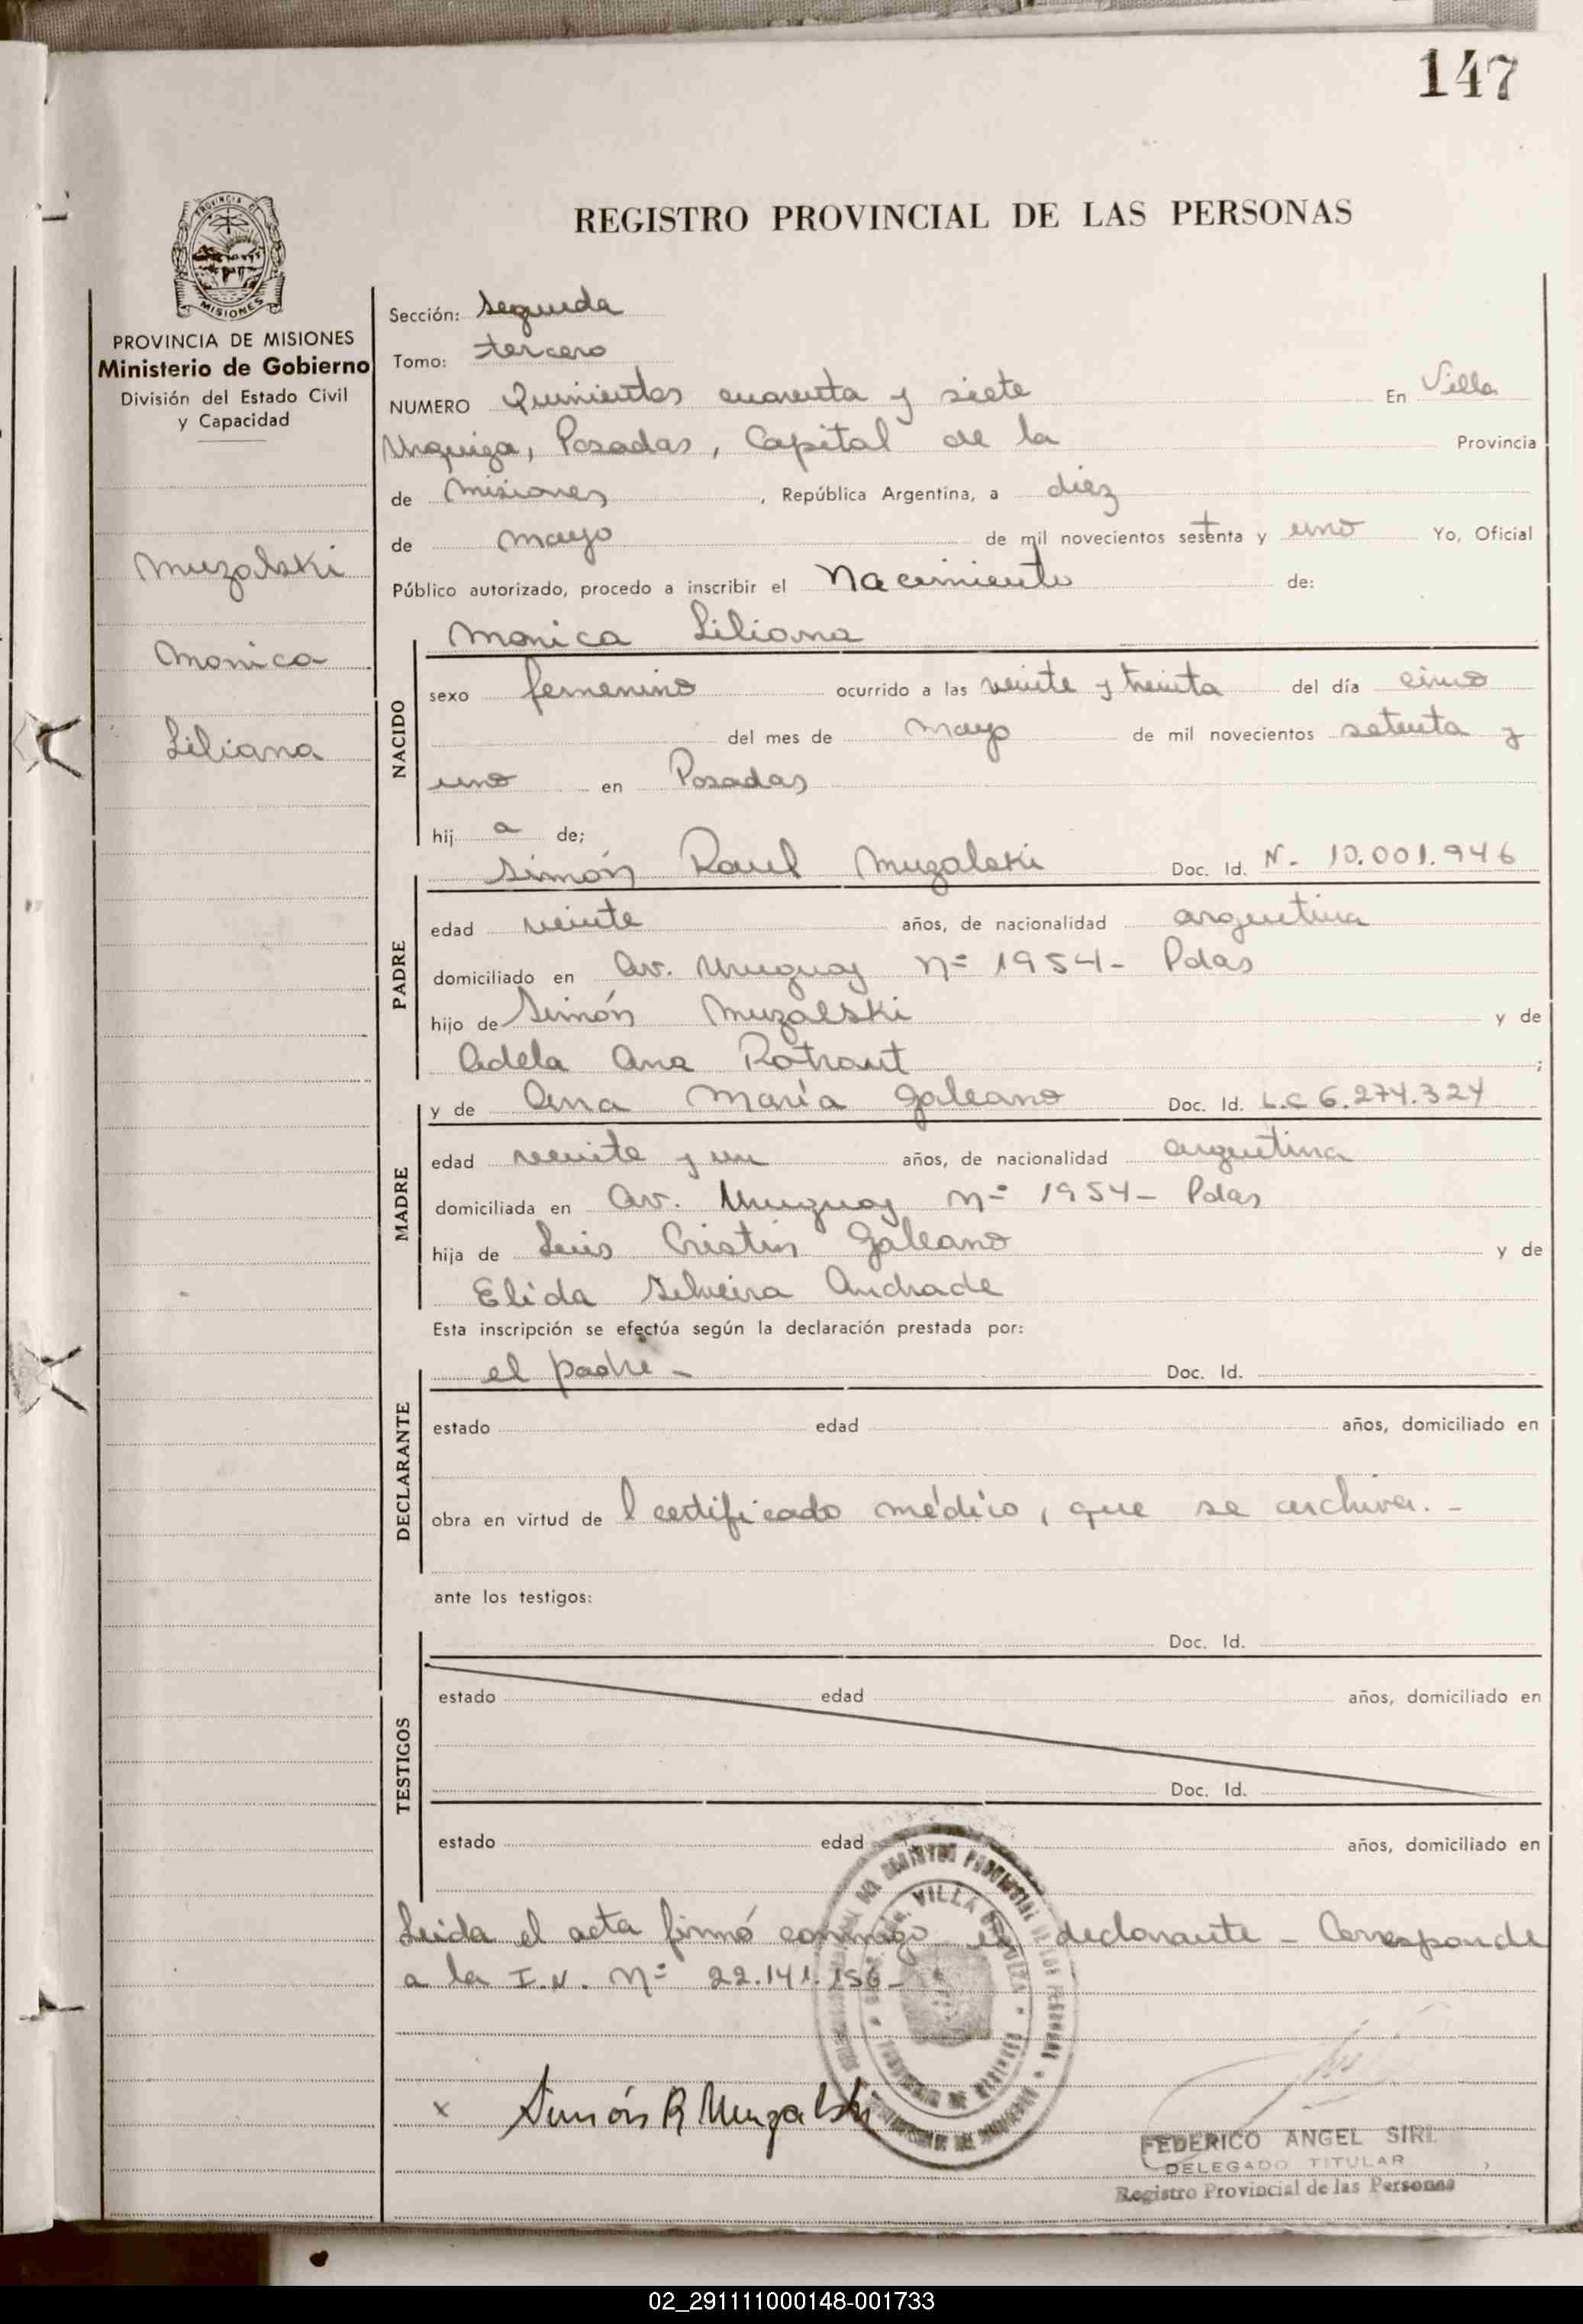 147
REGISTRO PROVINCIAL DE LAS PERSONAS
PROVINCIA DE
MISIONES
PROVINCIA DE MISIONES
Ministerio de Gobierno
División del Estado Civil
y Capacidad
Muzalski
Monica
Liliana
Sección: Segunda
Tomo: tercero
NUMERO Quinientos cuarenta y siete En Villa
Urquiza, Posadas, Capital de la Provincia
de Misiones, República Argentina, a diez
de mayo de mil novecientos setenta y uno Yo, Oficial
Público autorizado, procedo a inscribir el Nacimiento de:
Monica Liliana
NACIDO
sexo femenino ocurrido a las veinte y treinta del día cinco
del mes de mayo de mil novecientos setenta y
uno en Posadas
hij a de;
Simón Raul Muzalski Doc. Id. N- 10.001.946
PADRE
edad veinte años, de nacionalidad argentina
domiciliado en Av. Uruguay nº 1954- Pdas
hijo de Simón Muzalski y de
Adela Ana Rotraut ;
y de Ana María Galeano Doc. Id. L.C 6.274.324
MADRE
edad veinte y un años, de nacionalidad argentina
domiciliada en Av. Uruguay nº 1954- Pdas
hija de Luis Cristin Galeano y de
Elida Silveira Andrade
Esta inscripción se efectúa según la declaración prestada por:
el padre - Doc. Id.
DECLARANTE
estado edad años, domiciliado en
obra en virtud de l certificado médico, que se archiva. -
ante los testigos:
Doc. Id.
TESTIGOS
estado edad años, domiciliado en
Doc. Id.
estado edad años, domiciliado en
Leida el acta firmó conmigo el declarante - Corresponde
a la I.N. Nº 22.141.156-
x Simón R Muzalski
FEDERICO ANGEL SIRI
DELEGADO TITULAR
Registro Provincial de las Personas
02_291111000148-001733